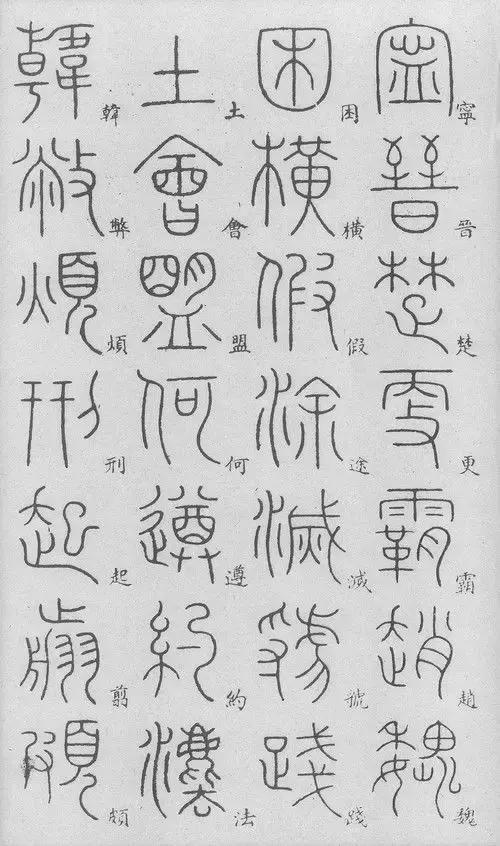 寧晉楚更霸趙魏
困橫假途滅號踐
土會盟何遵約法
韓弊煩刑起剪頗